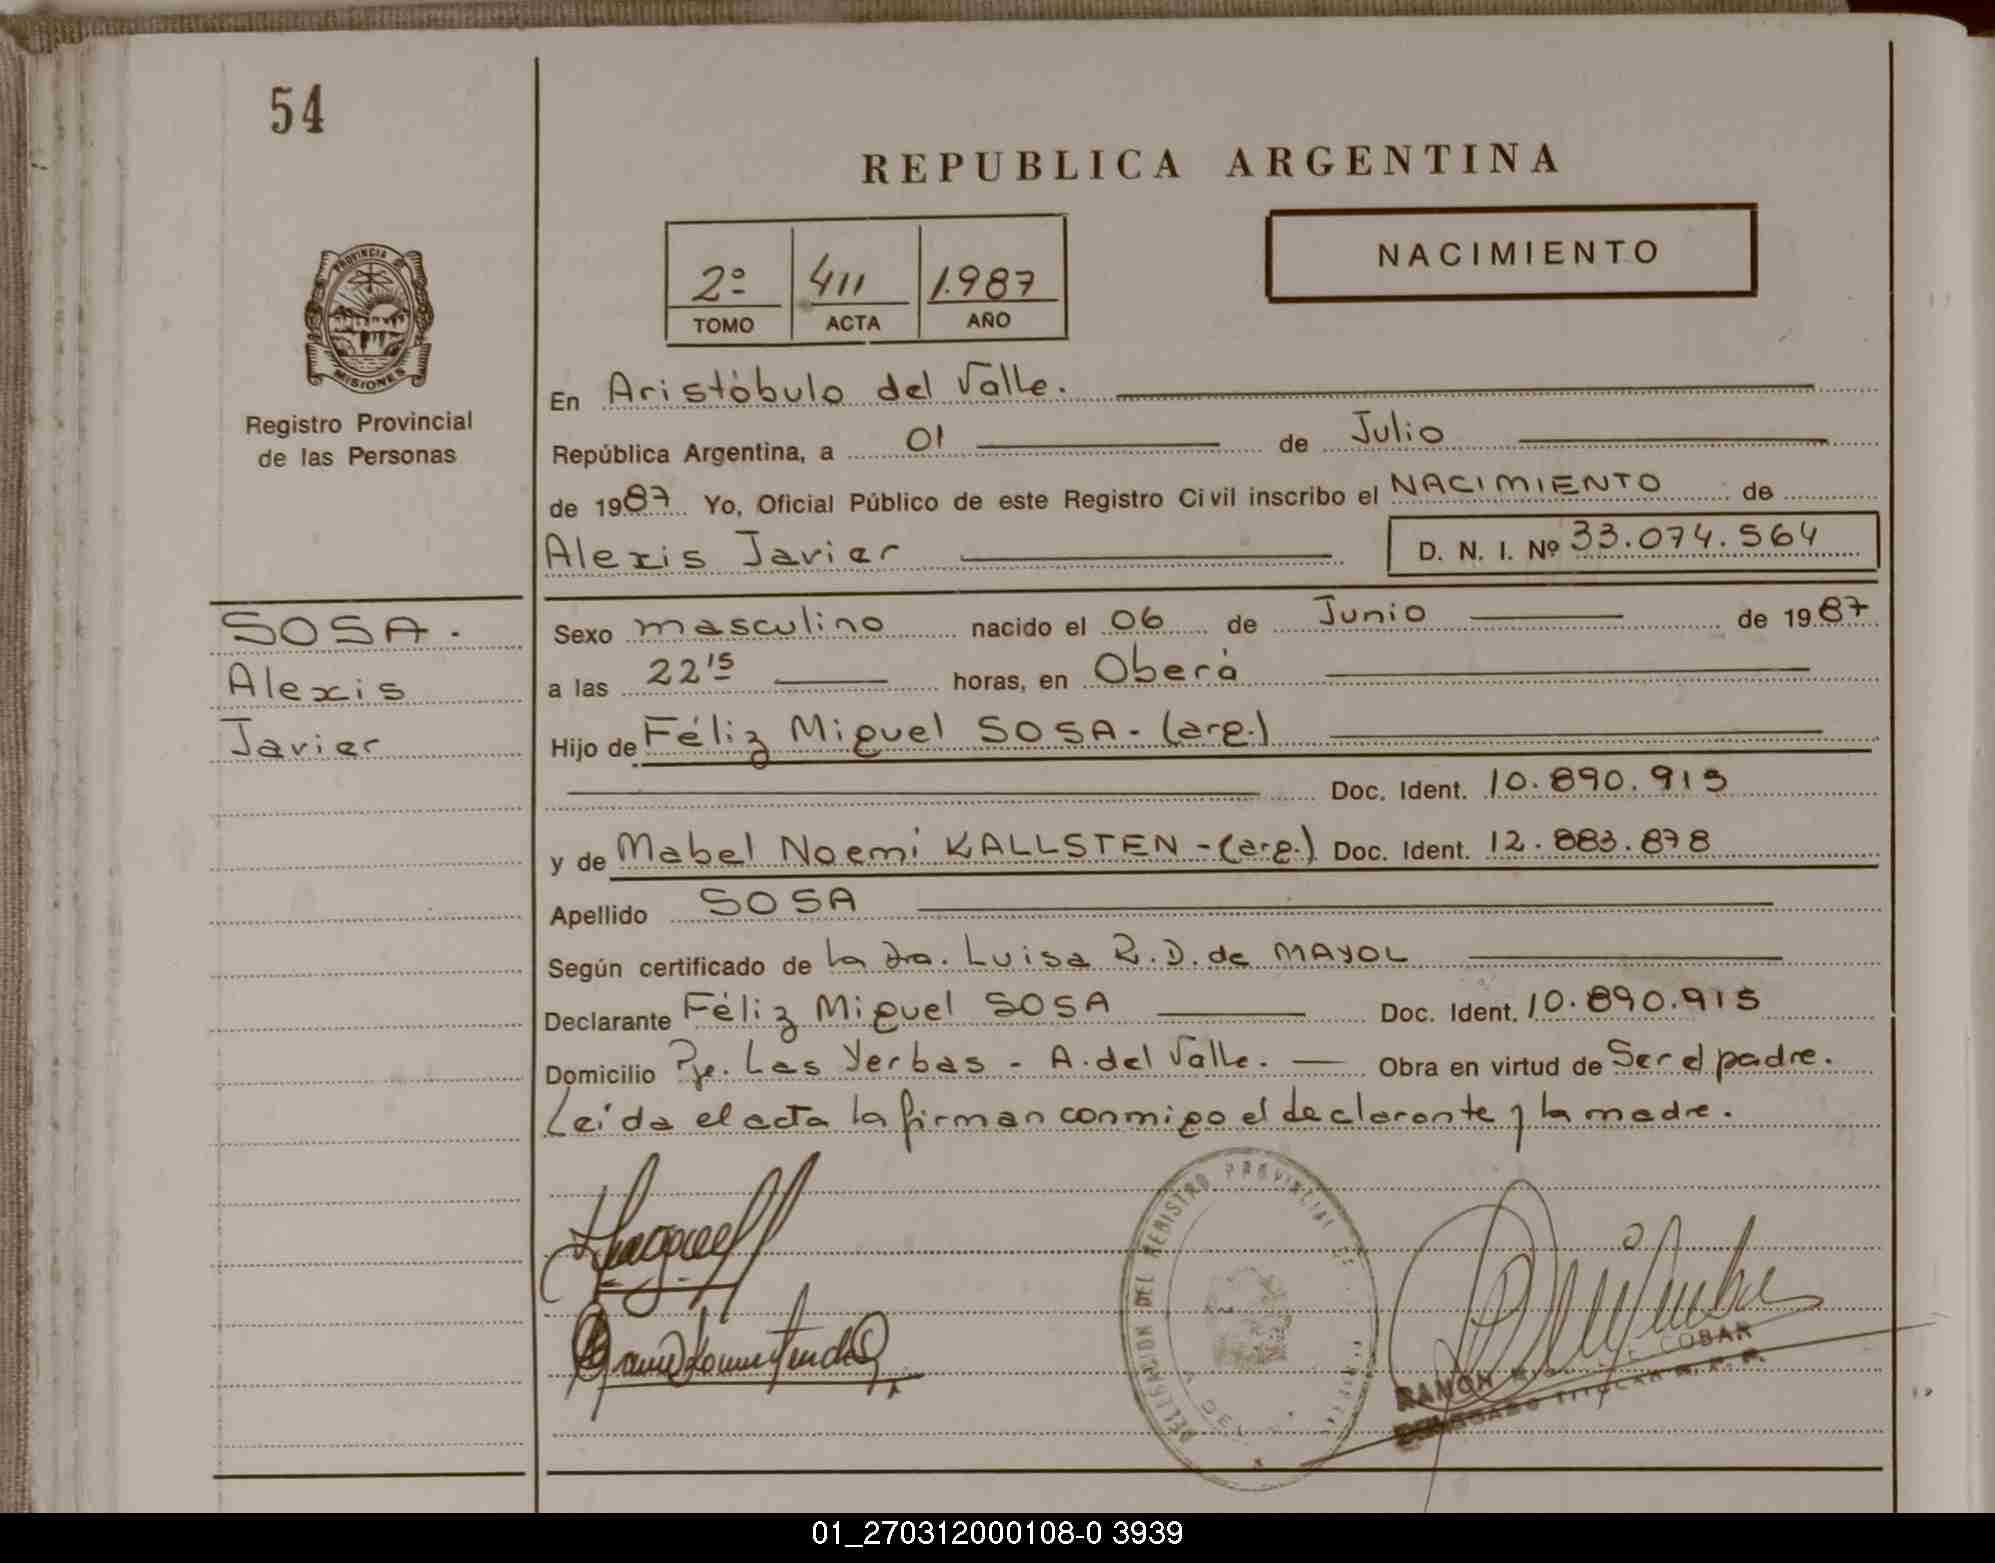 54
REPUBLICA ARGENTINA
PROVINCIA DE
MISIONES
Registro Provincial
de las Personas
2º 411 1.987
TOMO ACTA AÑO
NACIMIENTO
En Aristóbulo del Valle.
República Argentina, a 01 de Julio
de 1987 Yo, Oficial Público de este Registro Civil inscribo el NACIMIENTO de
Alexis Javier D. N. I. Nº 33.074.564
SOSA.
Alexis
Javier
Sexo masculino nacido el 06 de Junio de 1987
a las 22 15 horas, en Oberá
Hijo de Féliz Miguel SOSA - (arg.)
Doc. Ident. 10.890.915
y de Mabel Noemi KALLSTEN - (arg.) Doc. Ident. 12.883.878
Apellido SOSA
Según certificado de la Dra. Luisa R. D. de MAYOL
Declarante Féliz Miguel SOSA Doc. Ident. 10.890.915
Domicilio Pje. Las Yerbas - A. del Valle. Obra en virtud de Ser el padre.
Leída el acta la firman conmigo el declarante y la madre.
DELEGACION DEL REGISTRO PROVINCIAL DE
RAMON COBAR
DELEGADO TITULAR R. P. P.
01_270312000108-0 3939